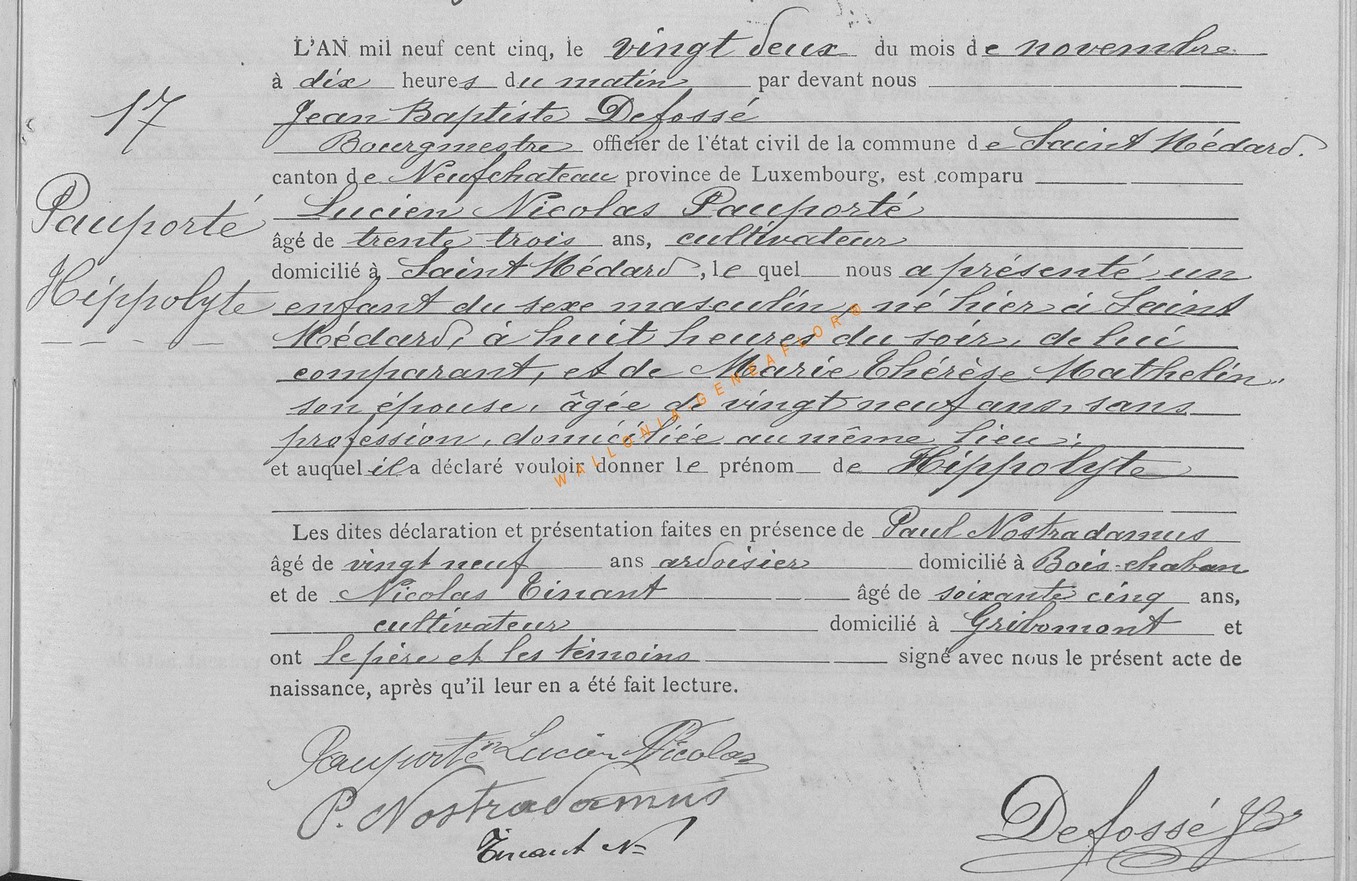 L'AN mil neuf cent cinq, le vingt deux du mois de novembre
à dix heures du matin par devant nous
17
Jean Baptiste Defossé
Bourgmestre officier de l'état civil de la commune de Saint Médard.
canton de Neufchateau province de Luxembourg, est comparu
Pauporté
Hippolyte
Lucien Nicolas Pauporté
âgé de trente trois ans, cultivateur
domicilié à Saint Médard, le quel nous a présenté un
enfant du sexe masculin, né hier à Saint
Médard, à huit heures du soir, de lui
comparant, et de Marie Thérèse Mathelin,
son épouse, âgée de vingt neuf ans, sans
profession, domiciliée au même lieu;
et auquel il a déclaré vouloir donner le prénom de Hippolyte
WALLONIA.GENEAFLORE
Les dites déclaration et présentation faites en présence de Paul Nostradamus
âgé de vingt neuf ans ardoisier domicilié à Bois-chaban
et de Nicolas Tinant âgé de soixante cinq ans,
cultivateur domicilié à Gribomont et
ont le père et les témoins signé avec nous le présent acte de
naissance, après qu'il leur en a été fait lecture.
Pauporté Lucien Nicolas
P. Nostradamus
Tinant N
Defossé JB